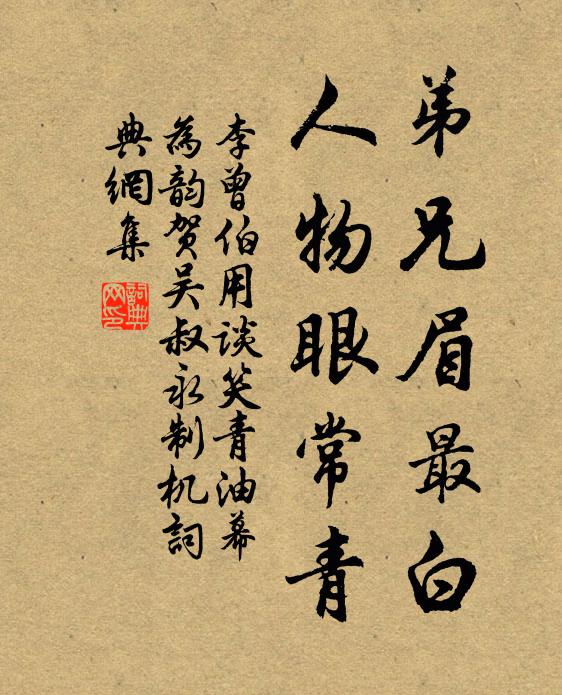 弟兄眉最白
人物眼常青
李曾伯用谈笑青油幕
為韵贺吴叔永制机詞
典網集
詞典网印